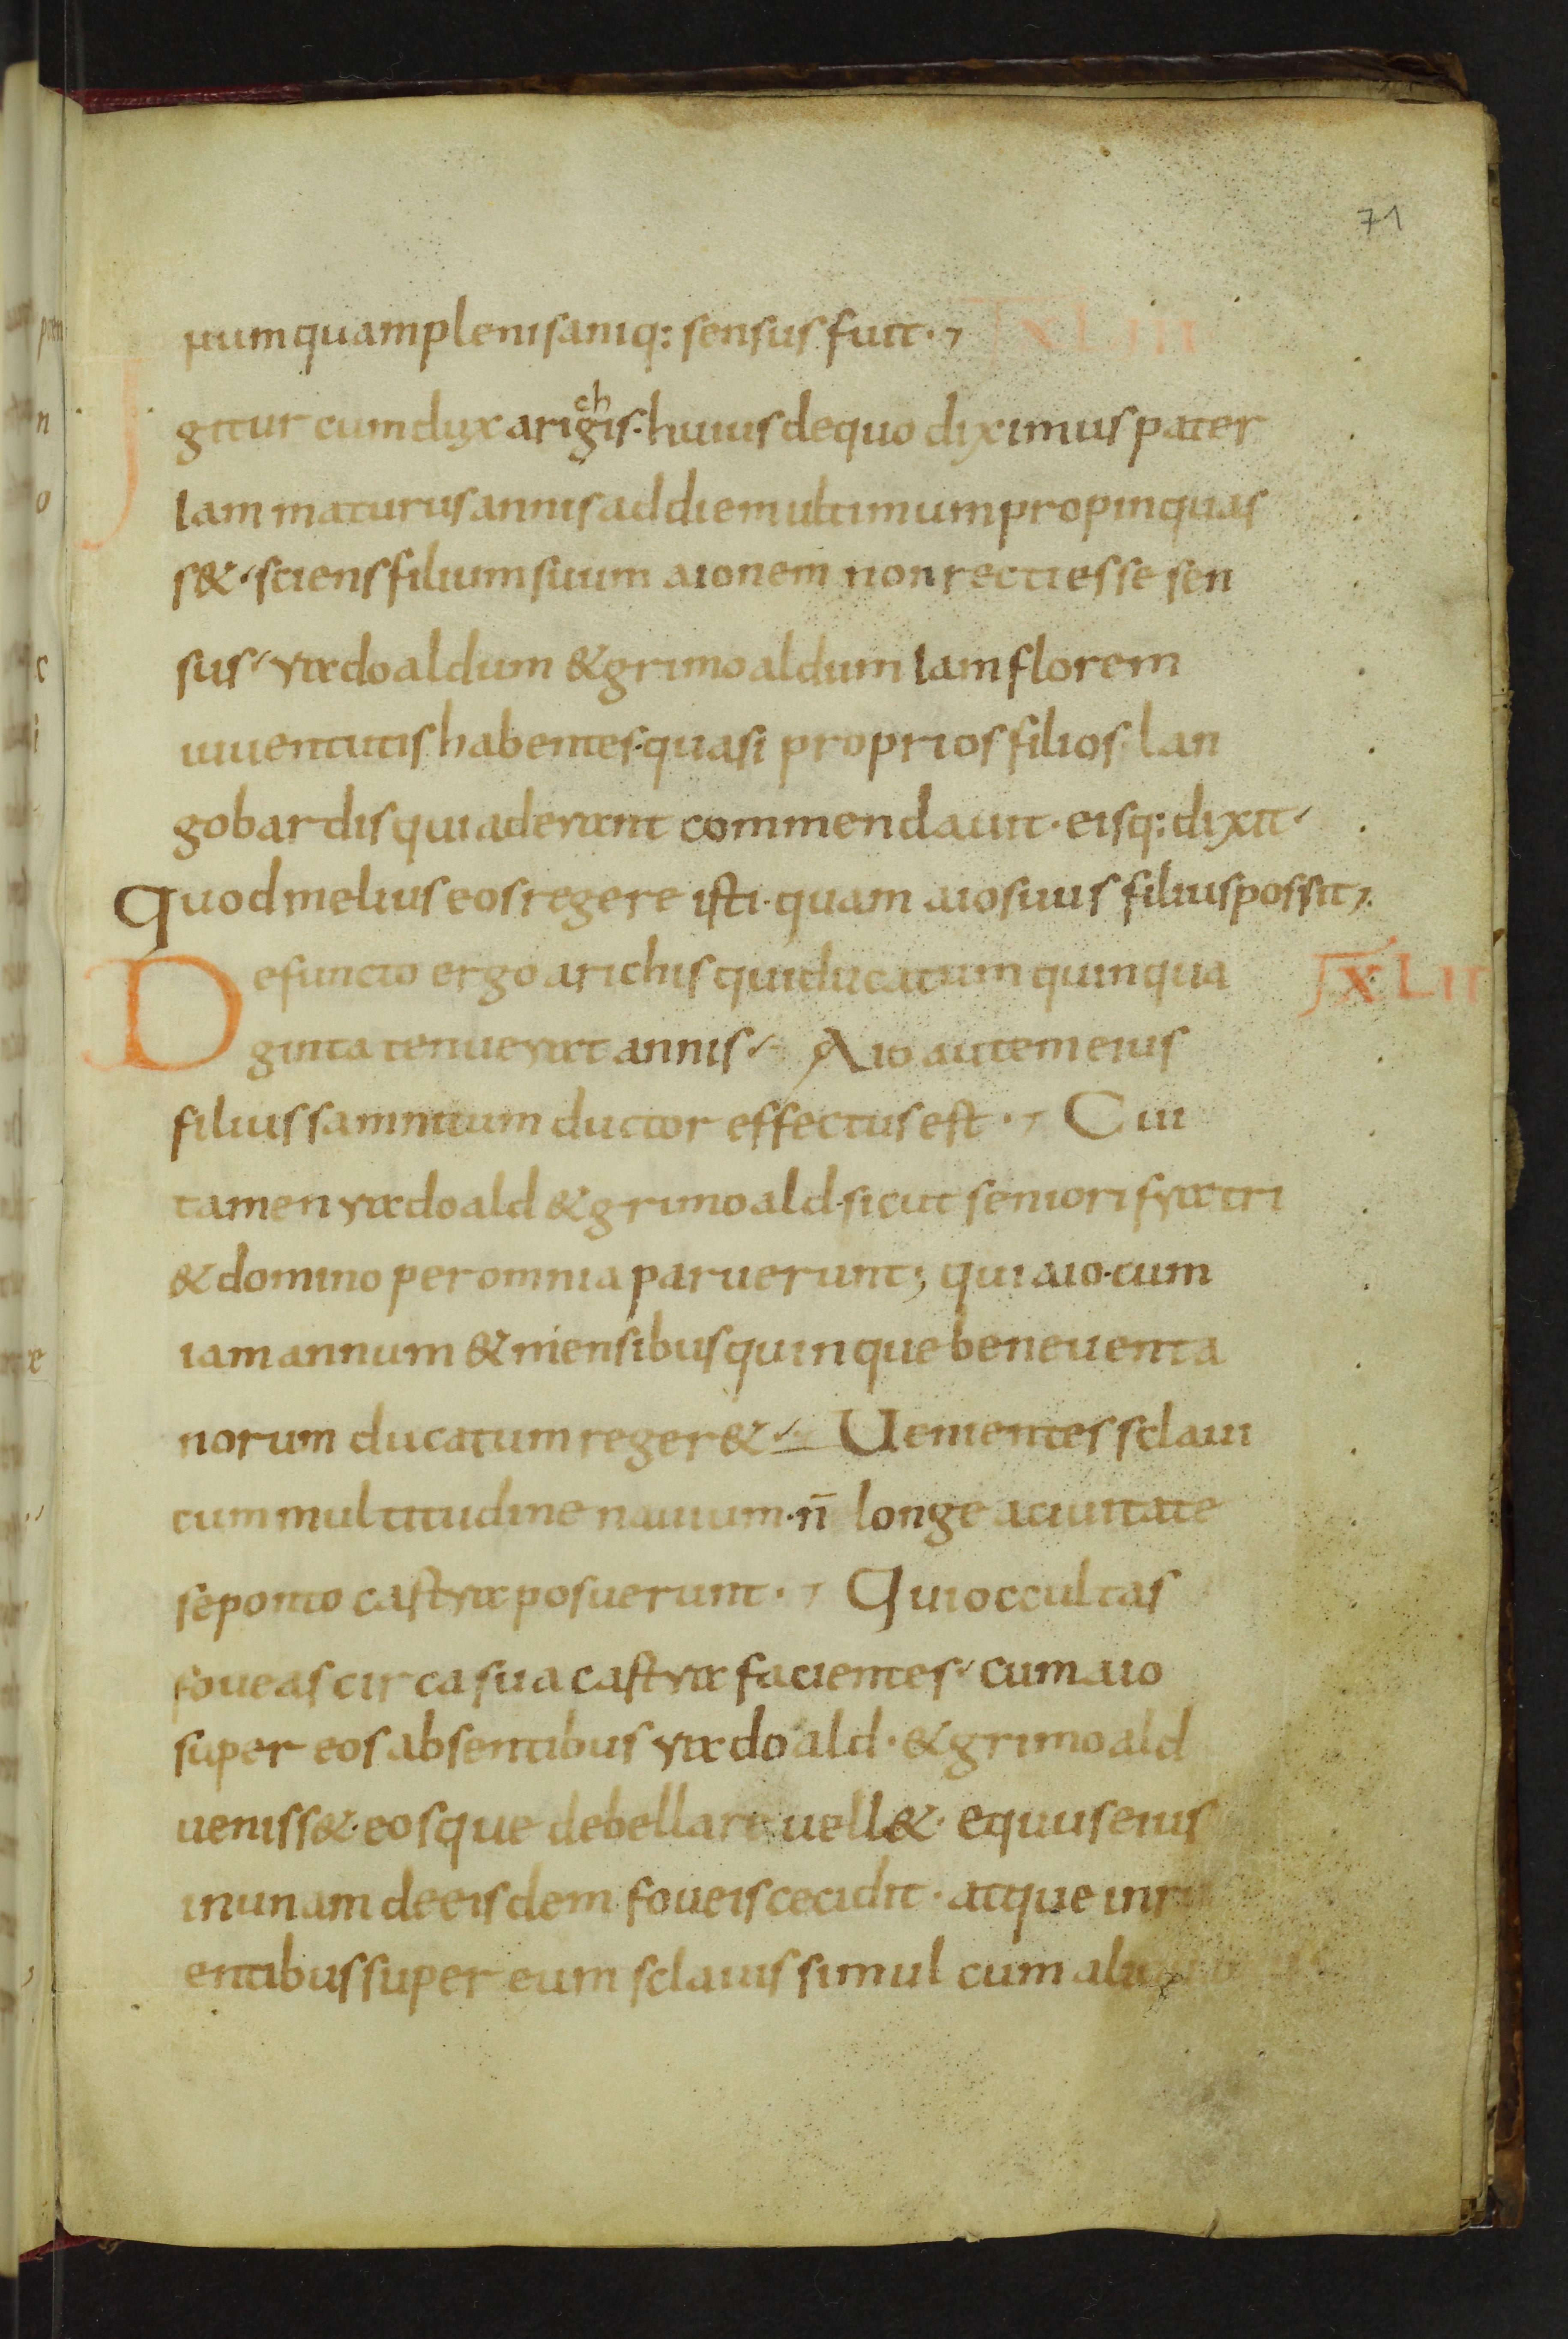 71
numquam pleni saniq: sensus fuit. XLIII
Igitur cum dux arigis ch huius de quo diximus pater
Iam maturus annis ad diem ultimum propinquas
s&. sciens filium suum aionem non recti esse sen
sus. radoaldum & grimoaldum Iam florem
iuuentutis habentes. quasi proprios filios. lan
gobardis qui aderant commendauit. eisq: dixit.
Quod melius eos regere isti. quam aio suus filius possit;
Defuncto ergo arichis qui ducatum quinqua XLIII
ginta tenuerat annis. Aio autem eius
filius samnitium ductor effectus est. Cui
tamen radoald & grimoald. sicut seniori fratri
& domino per omnia paruerunt; qui aio. cum
iam annum & mensibus quinque beneuenta
norum ducatum reger&. Uenientes sclaui
cum multitudine nauium. n̄ longe a ciuitate
seponto castra posuerunt. Qui occultas
foueas circa sua castra facientes. cum aio
super eos absentibus radoald. & grimoald
ueniss&. eosque debellare uell&. equus eius
in unam de eisdem foueis cecidit. atque inru
entibus super eum sclauis simul cum